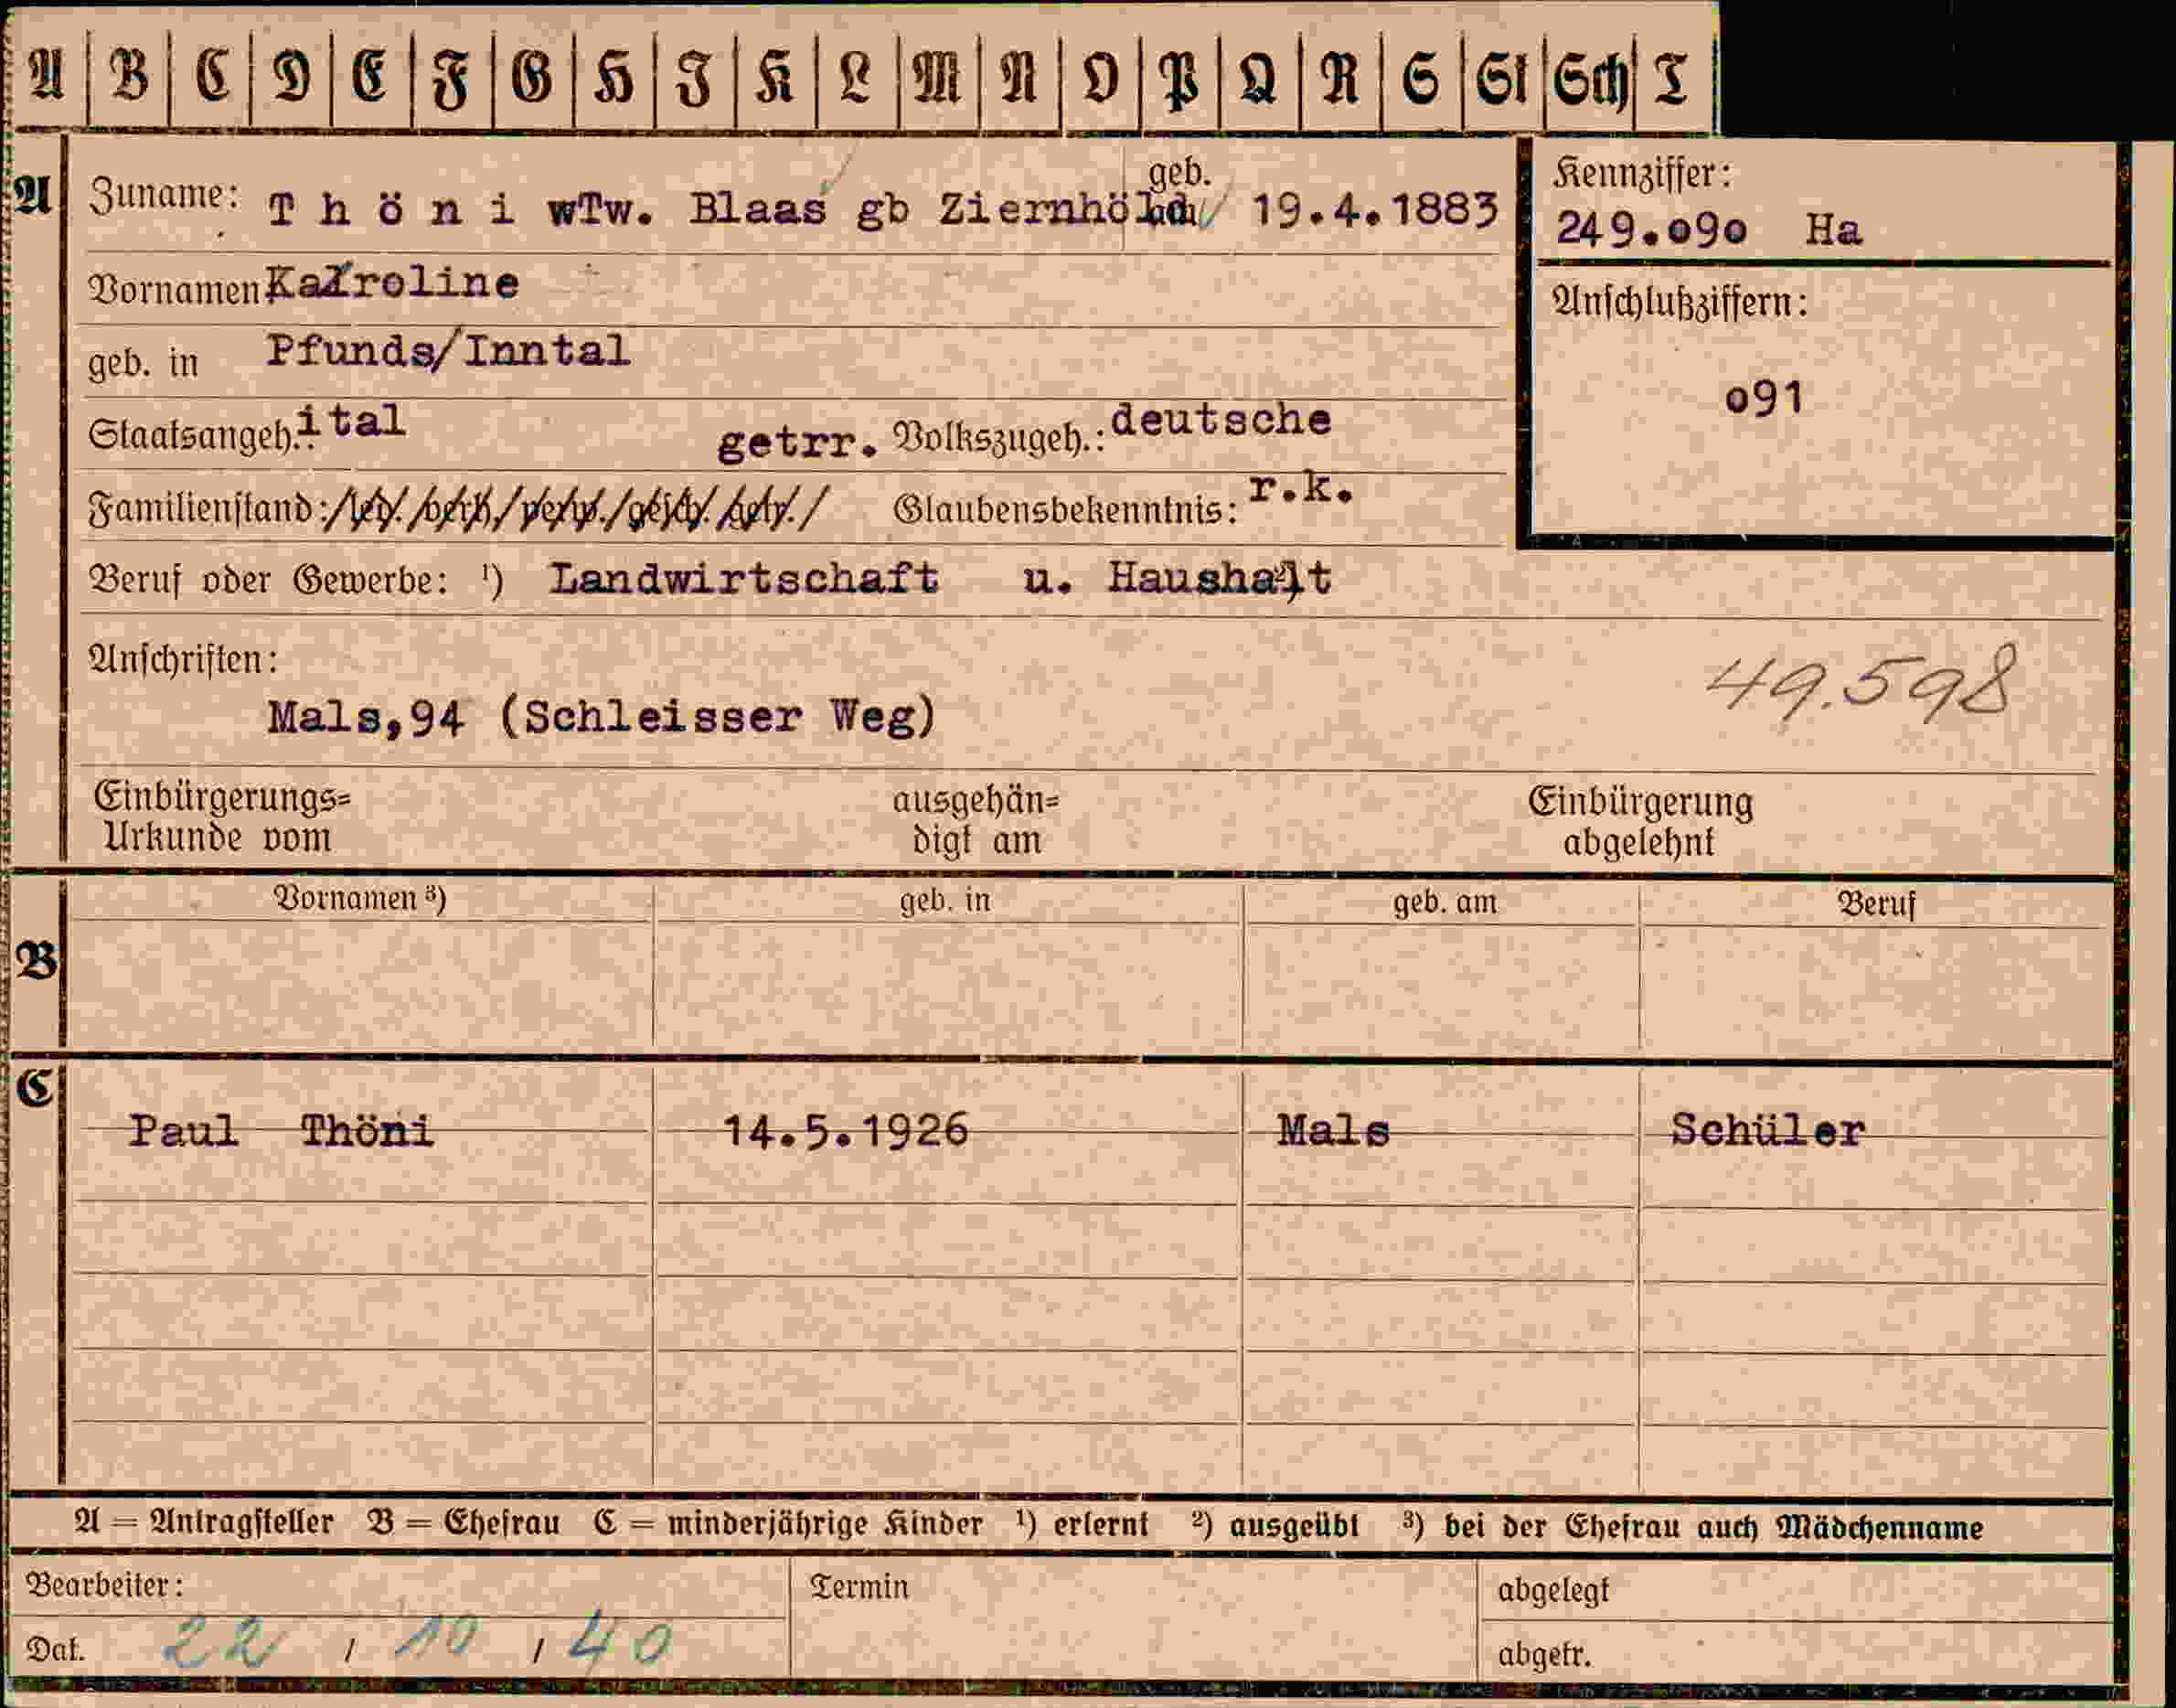 A B C D E F G H I K L M N O P Q R S St Sch T
A
geb.
Zuname: T h ö n i wTw. Blaas gb Ziernhöld 19.4.1883
Kennziffer:
249.o9o Ha
Vornamen Karoline
Anschlußziffern:
o91
geb. in Pfunds/Inntal
Staatsangeh.: ital getrr. Volkszugeh.: deutsche
Familienstand: /led./verh./verw./gesch./getr./ Glaubensbekenntnis: r.k.
Beruf oder Gewerbe: ¹) Landwirtschaft u. Haushalt
Anschriften:
49.598
Mals,94 (Schleisser Weg)
Einbürgerungs= ausgehän= Einbürgerung
Urkunde vom digt am abgelehnt
Vornamen ³) geb. in geb. am Beruf
B
C
Paul Thöni 14.5.1926 Mals Schüler
A = Antragsteller B = Ehefrau C = minderjährige Kinder ¹) erlernt ²) ausgeübt ³) bei der Ehefrau auch Mädchenname
Bearbeiter: Termin abgelegt
Dat. 22 / 10 / 40 abgetr.